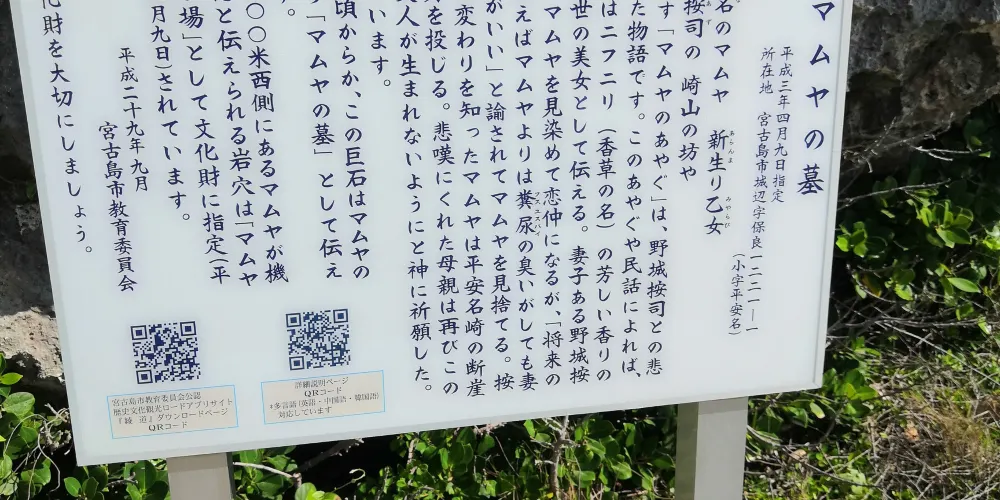 マムヤの墓
平成三年四月九日指定
所在地 宮古島市城辺字保良一二一一一
(小字平安名)
名のマムヤ 新生り乙女
あらんま みやらび
按司の 崎山の坊や
あず
す「マムヤのあやぐ」は、野城按司との悲
た物語です。このあやぐや民話によれば、
はニフニリ(香草の名)の芳しい香りの
世の美女として伝える。妻子ある野城按
マムヤを見染めて恋仲になるが、「将来の
えばマムヤよりは糞尿の臭いがしても妻
がいい」と諭されてマムヤを見捨てる。按
変わりを知ったマムヤは平安名崎の断崖
を投じる。悲嘆にくれた母親は再びこの
人が生まれないようにと神に祈願した。
います。
頃からか、この巨石はマムヤの
「マムヤの墓」として伝え
。
〇〇米西側にあるマムヤが機
と伝えられる岩穴は「マムヤ
場」として文化財に指定(平
月九日)されています。
平成二十九年九月
宮古島市教育委員会
化財を大切にしましょう。
詳細説明ページ
QRコード
*多言語(英語・中国語・韓国語)
対応しています
宮古島市教育委員会公認
歴史文化観光ロードアプリサイト
『綾道』ダウンロードページ
QRコード